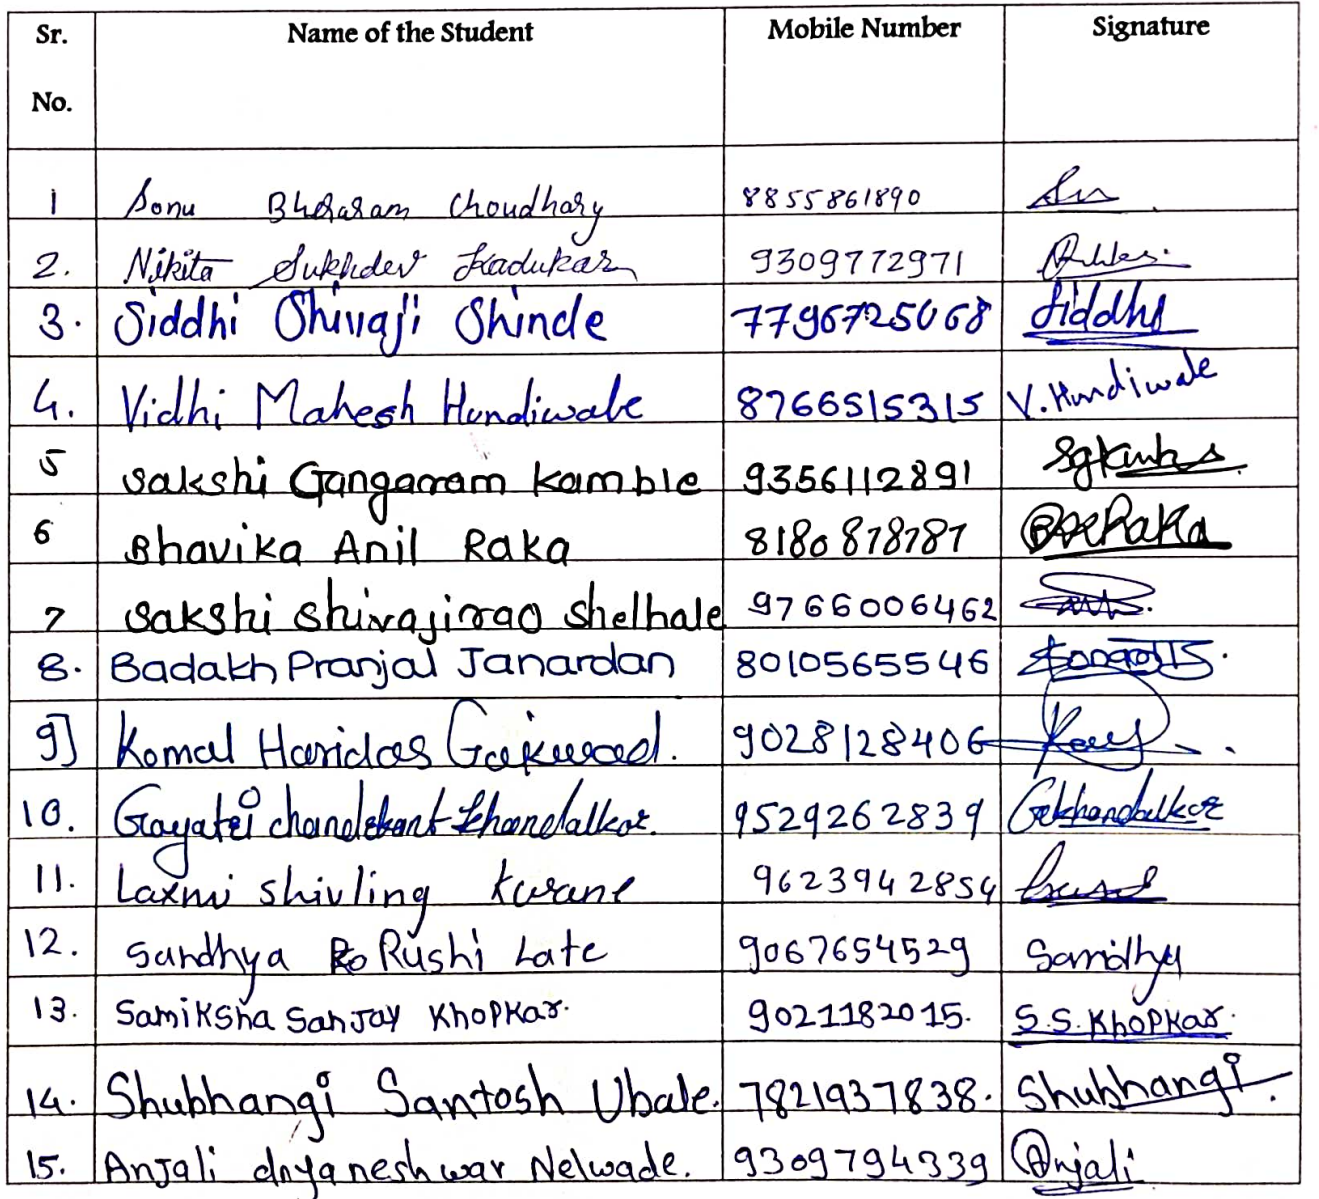 Sr. No. Name of the Student Mobile Number Signature
1 Sonu Bhararam Choudhary 8855861890
2. Nikita Sukhdev Kadukar 9309772971
3. Siddhi Shivaji Shinde 7796725068 Siddhi
4. Vidhi Mahesh Hundiwale 8766515315 V. Hundiwale
5 Sakshi Gangaram Kamble 9356112891
6 Bhavika Anil Raka 8180878787 Raka
7 Sakshi Shivajirao Shelhale 9766006462
8. Badakh Pranjal Janardan 8010565546
9] Komal Haridas Gaikwad. 9028128406
10. Gayatri chandrkant Khandalkar. 9529262839 Gckhandalkar
11. Laxmi Shivling Kurane 9623942854
12. Sandhya Rushi Late 9067654529 Samdhy
13. Samiksha Sanjay Khopkar. 9021182015. S.S. Khopkar.
14. Shubhangi Santosh Ubale. 7821937838. Shubhangi.
15. Anjali dnyaneshwar Nelwade. 9309794339 Anjali